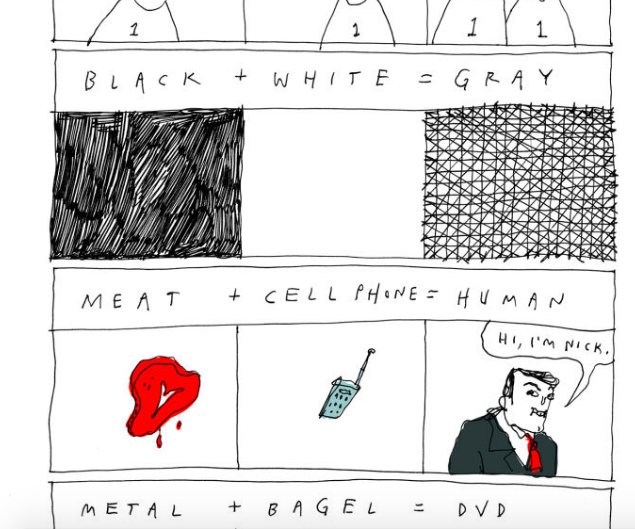 1 1 1 1
BLACK + WHITE = GRAY
MEAT + CELL PHONE = HUMAN
HI, I'M NICK.
METAL + BAGEL = DVD